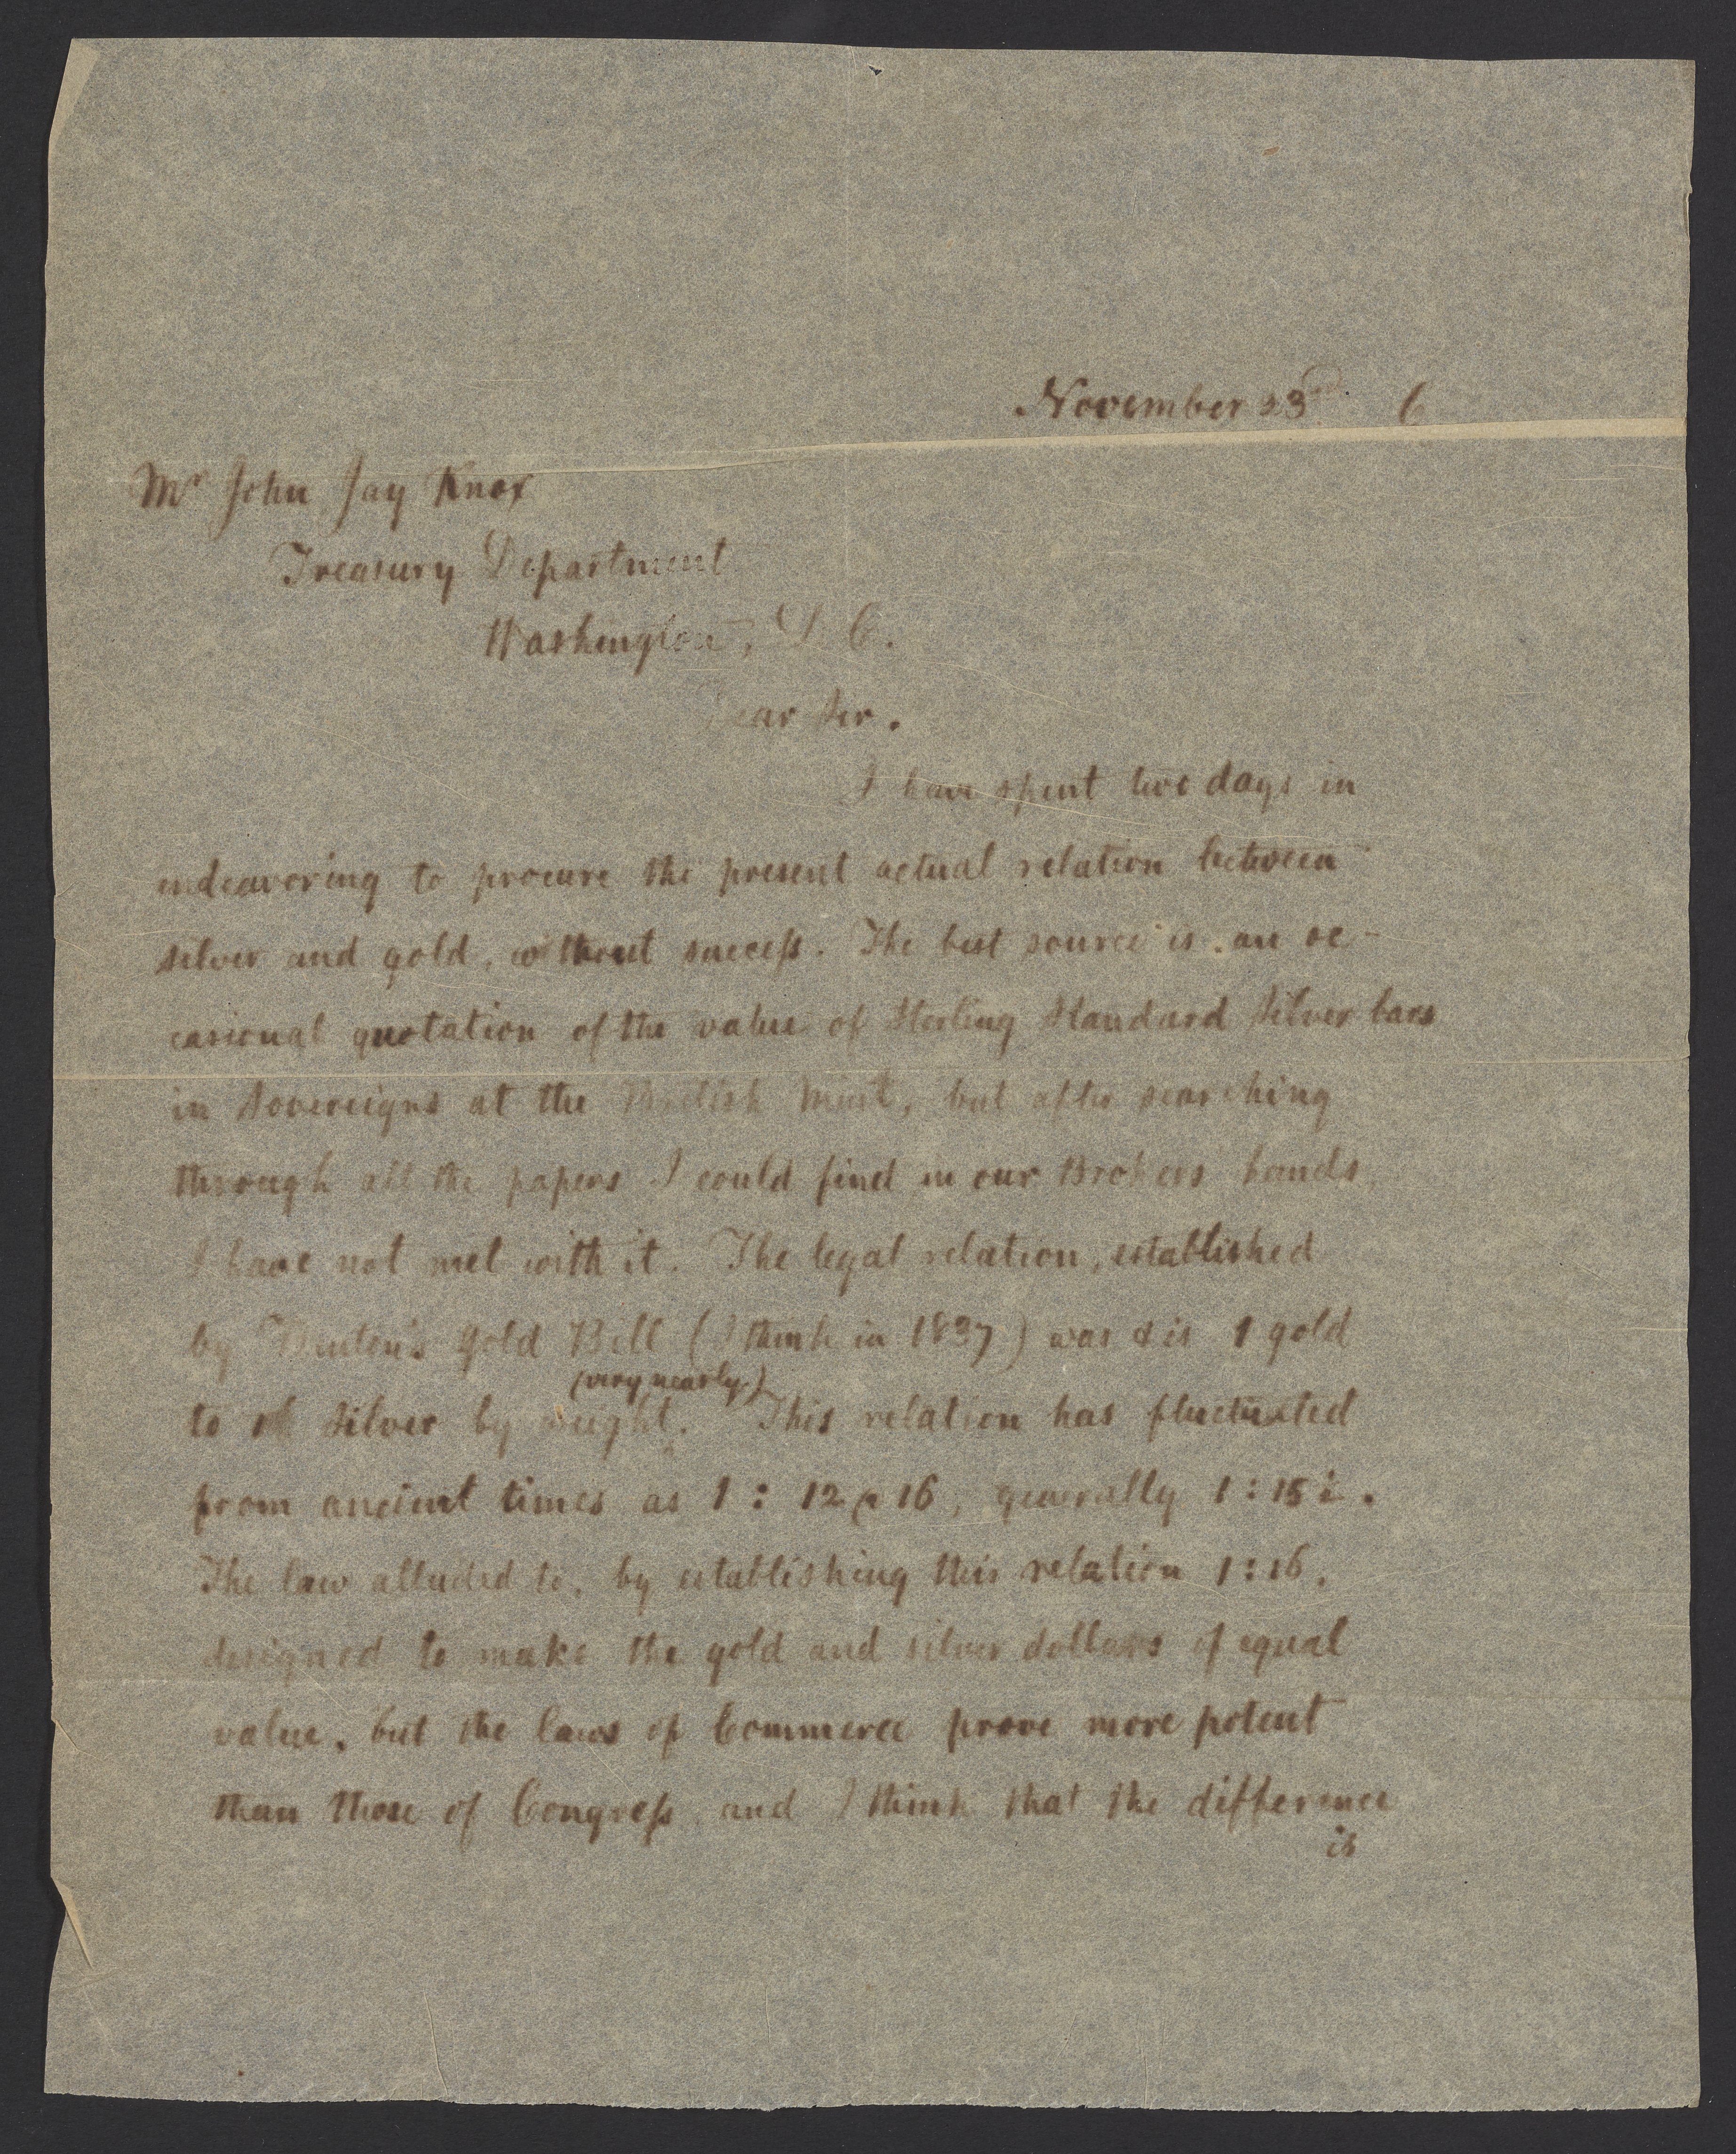 November 23d 6
Mr John Jay Knox
Treasury Department
Washington, D. C.
Dear Sir.
I have spent two days in
endeavoring to procure the present actual relation between
silver and gold, without success. The best source is an oc-
casional quotation of the value of Sterling Standard Silver bars
in Sovereigns at the British Mint, but after searching
through all the papers I could find in our Brokers hands
I have not met with it. The legal relation, established
by Benton's Gold Bill (I think in 1837) was & is 1 gold
(very nearly)
to 16 Silver by weight. This relation has fluctuated
from ancient times as 1 : 12 @ 16, generally 1 : 15
The law alluded to, by establishing this relation 1 : 16,
designed to make the gold and silver dollars of equal
value, but the laws of Commerce prove more potent
than those of Congress, and I think that the difference
is